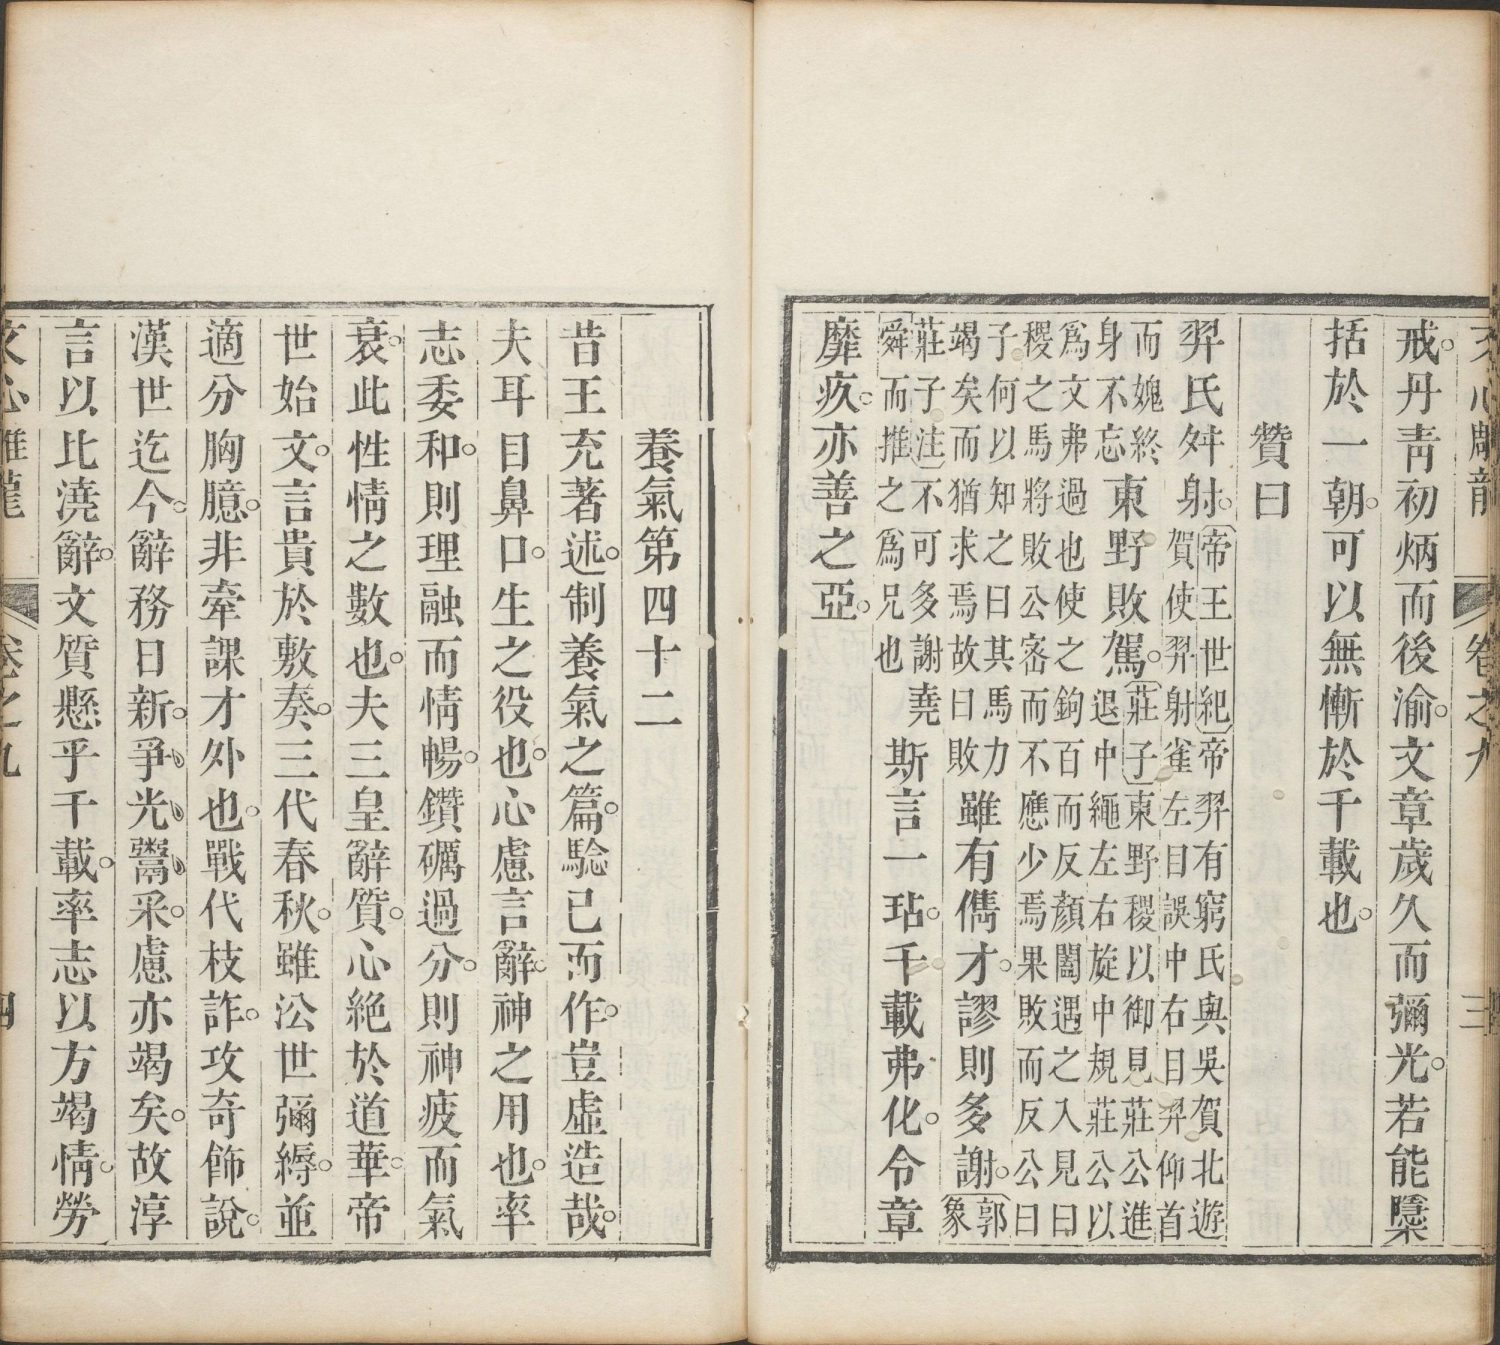 文心雕龍 卷之九 三
戒。丹青初炳而後渝。文章歲久而彌光。若能檃
括於一朝。可以無慚於千載也。
贊曰
羿氏舛射。
帝王世紀帝羿有窮氏與吳賀北遊
賀使羿射雀左目誤中右目羿仰首
而媿終
身不忘
東野敗駕。
莊子東野稷以御見莊公進
退中繩左右旋中規莊公以
爲文弗過也使之鉤百而反顏闔遇之入見曰
稷之馬將敗公密而不應少焉果敗而反公曰
子何以知之曰其馬力
竭矣而猶求焉故曰敗
雖有儁才。謬則多謝。
郭
象
莊子注不可多謝堯
舜而推之爲兄也
斯言一玷。千載弗化。令章
靡疚。亦善之亞。
養氣第四十二
昔王充著述。制養氣之篇。驗己而作。豈虛造哉。
夫耳目鼻口。生之役也。心慮言辭。神之用也。率
志委和。則理融而情暢。鑽礪過分。則神疲而氣
衰。此性情之數也。夫三皇辭質。心絕於道華。帝
世始文。言貴於敷奏。三代春秋。雖㳂世彌縟。並
適分胸臆。非牽課才外也。戰代枝詐。攻奇飾說。
漢世迄今。辭務日新。爭光鬻采。慮亦竭矣。故淳
言以比澆辭。文質懸乎千載。率志以方竭情。勞
文心雕龍 卷之九 四